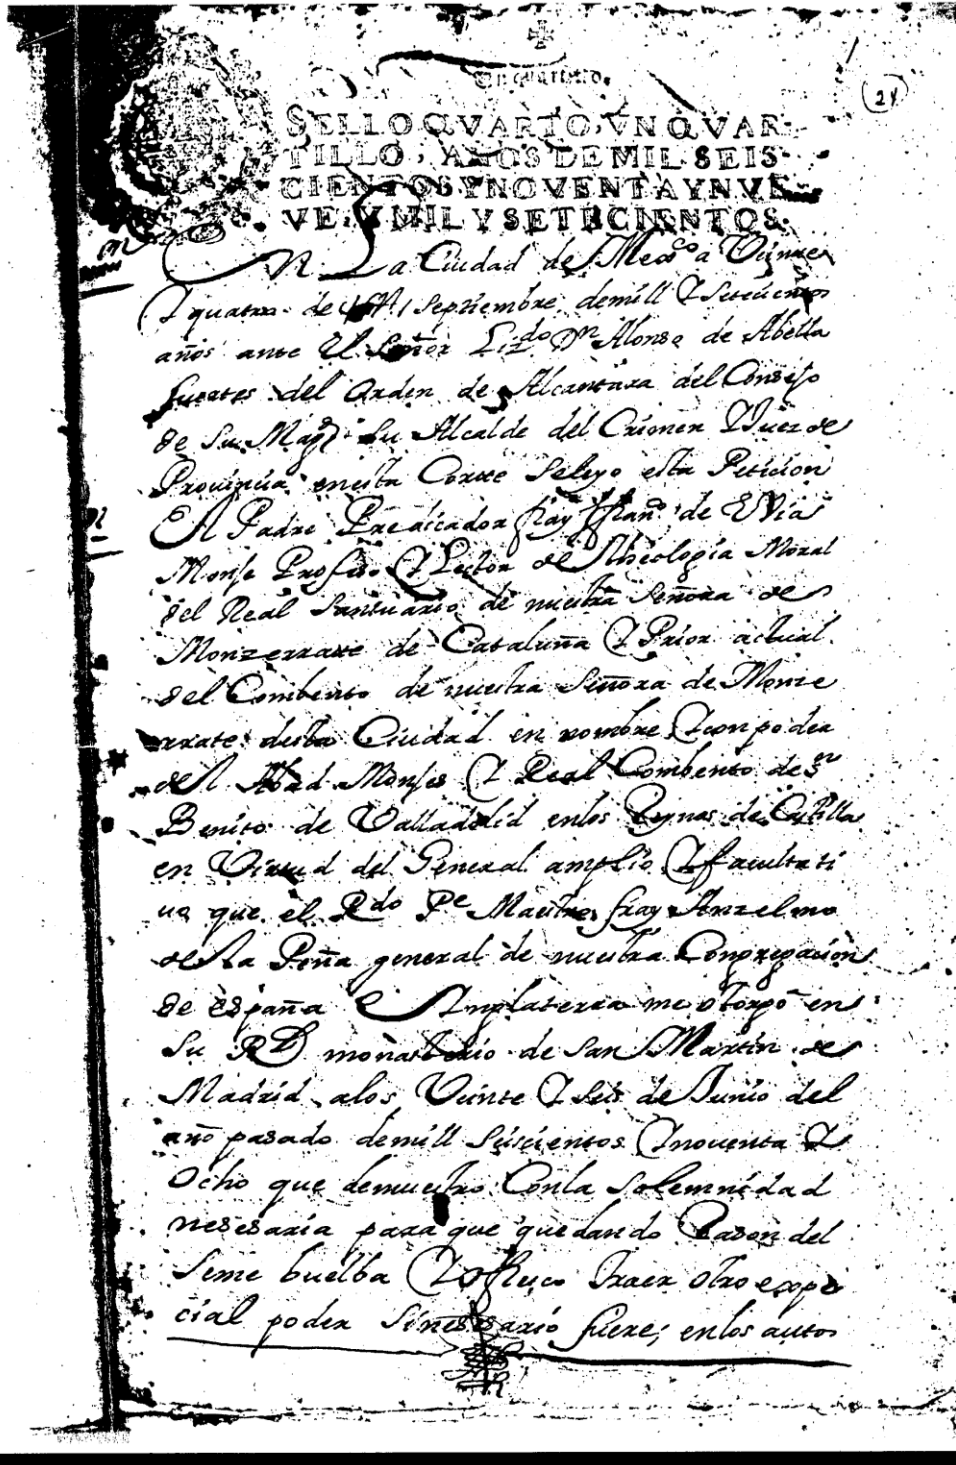 Un quartillo.
24
SELLO QVARTO, VN QVAR-
TILLO, AÑOS DE MIL SEIS-
CIENTOS Y NOVENTA Y NVE-
VE, Y MIL Y SETECIENTOS.
En La Ciudad de Mexco a Veinte
Y quatro de Septiembre demill Y Setecientos
años ante El Señor Lizdo Dn Alonso de Abella
fuertes del Orden de Alcantara del Consejo
de Su Magd Su Alcalde del Crimen Y Juez de
Prouinçia enesta Corte Seleyo esta Peticion
El Padre Predicador fray Franco de EVia
Monje Profeso Y Lector de Theologia Moral
del Real Santuario de nuestra Señora de
Monzerrate de Cataluña Y Prior actual
del Combento de nuestra Señora de Monze
rrate desta Ciudad en nombre Y con poder
del Abad Monjes Y Real Combento de Sn
Benito de Valladolid enlos Reynos de Castilla
en Virtud del General amplio Y facultati
uo que el Rdo Pe Maestro fray Anzelmo
de la Peña general de nuestra Congregacion
de españa E Inglaterra me otorgó en
Su Rl monasterio de San Martin de
Madrid alos Veinte Y Seis de Junio del
año pasado demill Seiscientos Y nouenta Y
Ocho que demuestro Conla Solemnidad
nesesaria para que quedando Rason del
Seme buelba Y ofresco traer otro espe
cial poder Sinesesario fuere, enlos autos